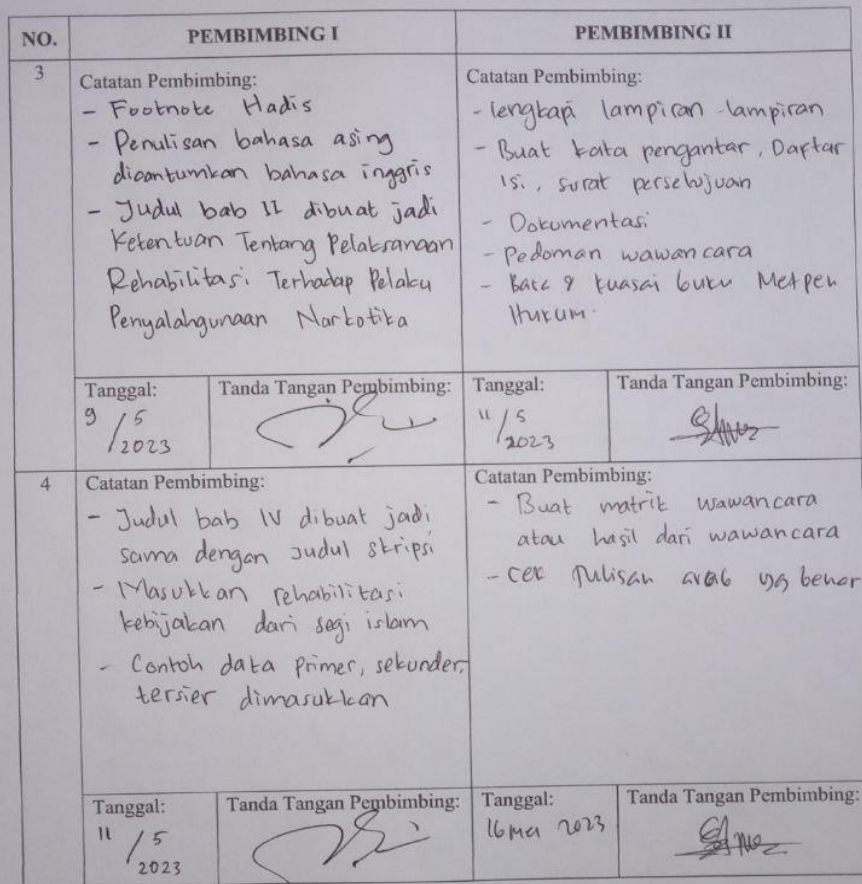 NO. PEMBIMBING I PEMBIMBING II
3
Catatan Pembimbing:
- Footnote Hadis
- Penulisan bahasa asing
dicantumkan bahasa inggris
- Judul bab II dibuat jadi
Ketentuan Tentang Pelaksanaan
Rehabilitasi Terhadap Pelaku
Penyalahgunaan Narkotika
Catatan Pembimbing:
- lengkapi lampiran-lampiran
- Buat kata pengantar, Daftar
isi, surat persetujuan
- Dokumentasi
- Pedoman wawancara
- Baca & kuasai buku Metpen
Hukum.
Tanggal:
9/5
2023
Tanda Tangan Pembimbing:
Tanggal:
11/5
2023
Tanda Tangan Pembimbing:
4
Catatan Pembimbing:
- Judul bab IV dibuat jadi
sama dengan judul skripsi
- Masukkan rehabilitasi
kebijakan dari segi islam
- Contoh data primer, sekunder,
tersier dimasukkan
Catatan Pembimbing:
- Buat matrik wawancara
atau hasil dari wawancara
- cek Tulisan arab yg benar
Tanggal:
11/5
2023
Tanda Tangan Pembimbing:
Tanggal:
16 Mei 2023
Tanda Tangan Pembimbing: